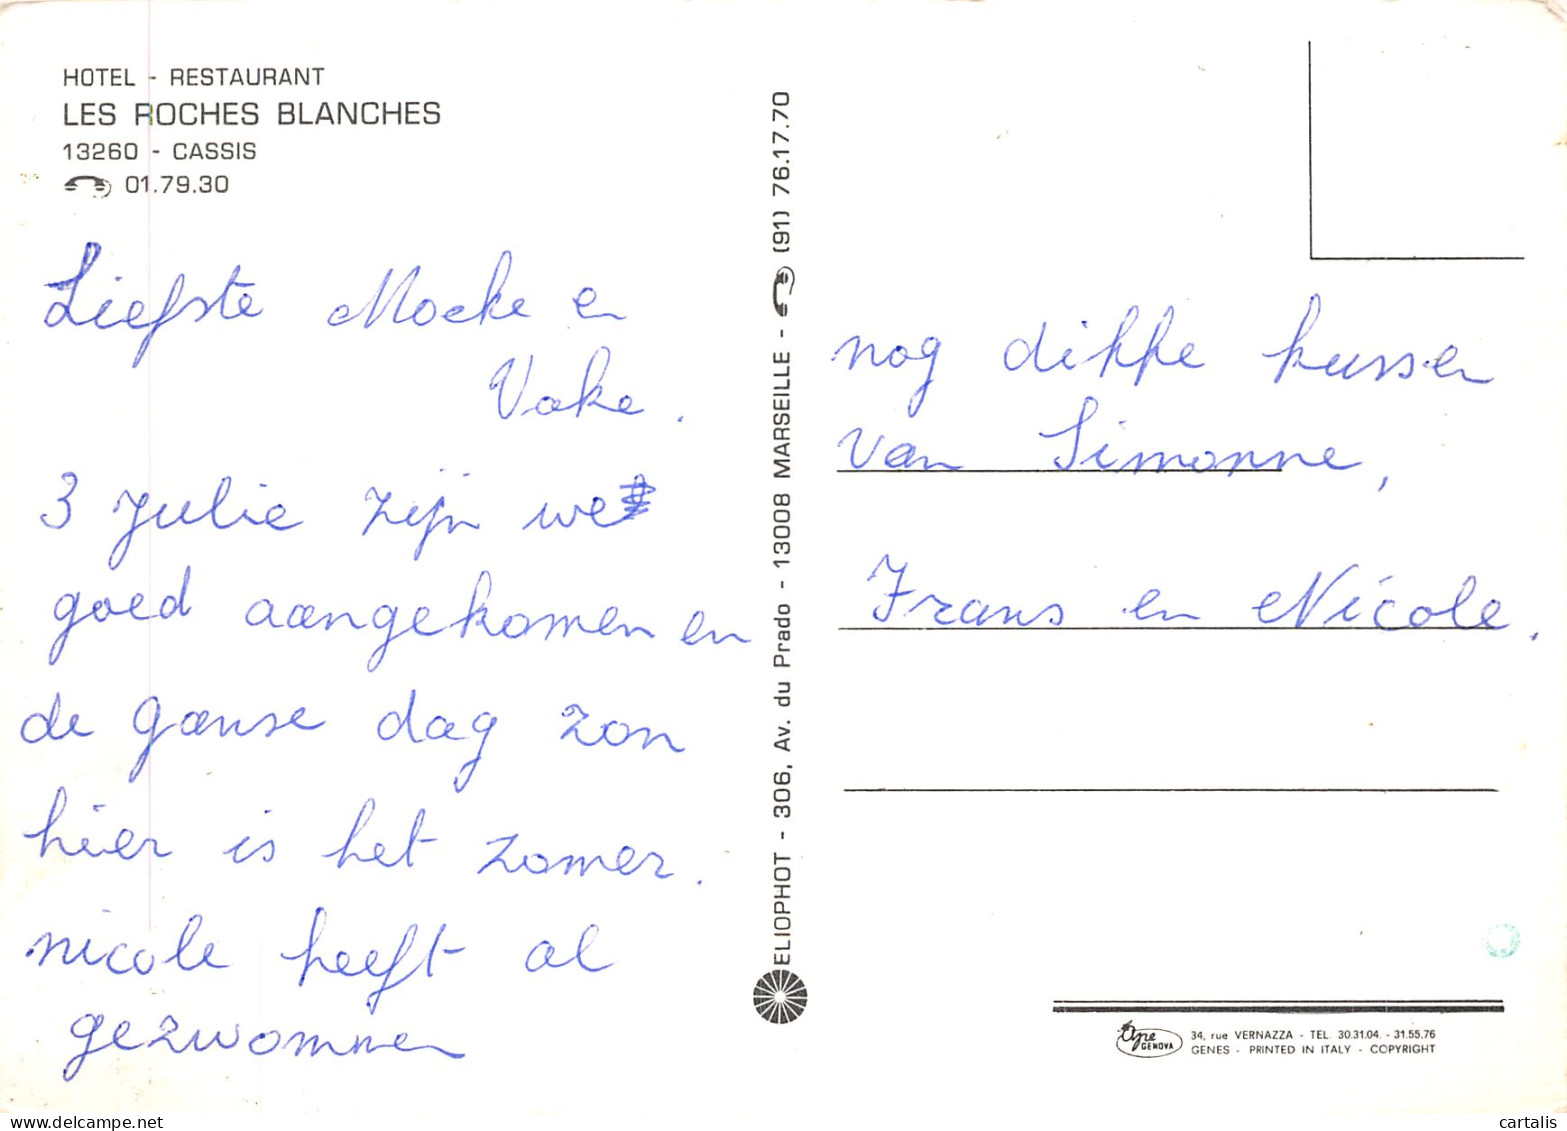 HOTEL - RESTAURANT
LES ROCHES BLANCHES
13260 - CASSIS
01.79.30
Liefste Moeke en
Vake.
3 Julie zijn we
goed aangekomen en
de ganse dag zon
hier is het zomer.
nicole heeft al
gezwommen
ELIOPHOT - 306, Av. du Prado - 13008 MARSEILLE - (91) 76.17.70
nog dikke kussen
van Simonne,
Frans en Nicole.
GENOVA
34, rue VERNAZZA - TEL. 30.31.04. - 31.55.76
GENES - PRINTED IN ITALY - COPYRIGHT
www.cartalis.com
cartalis